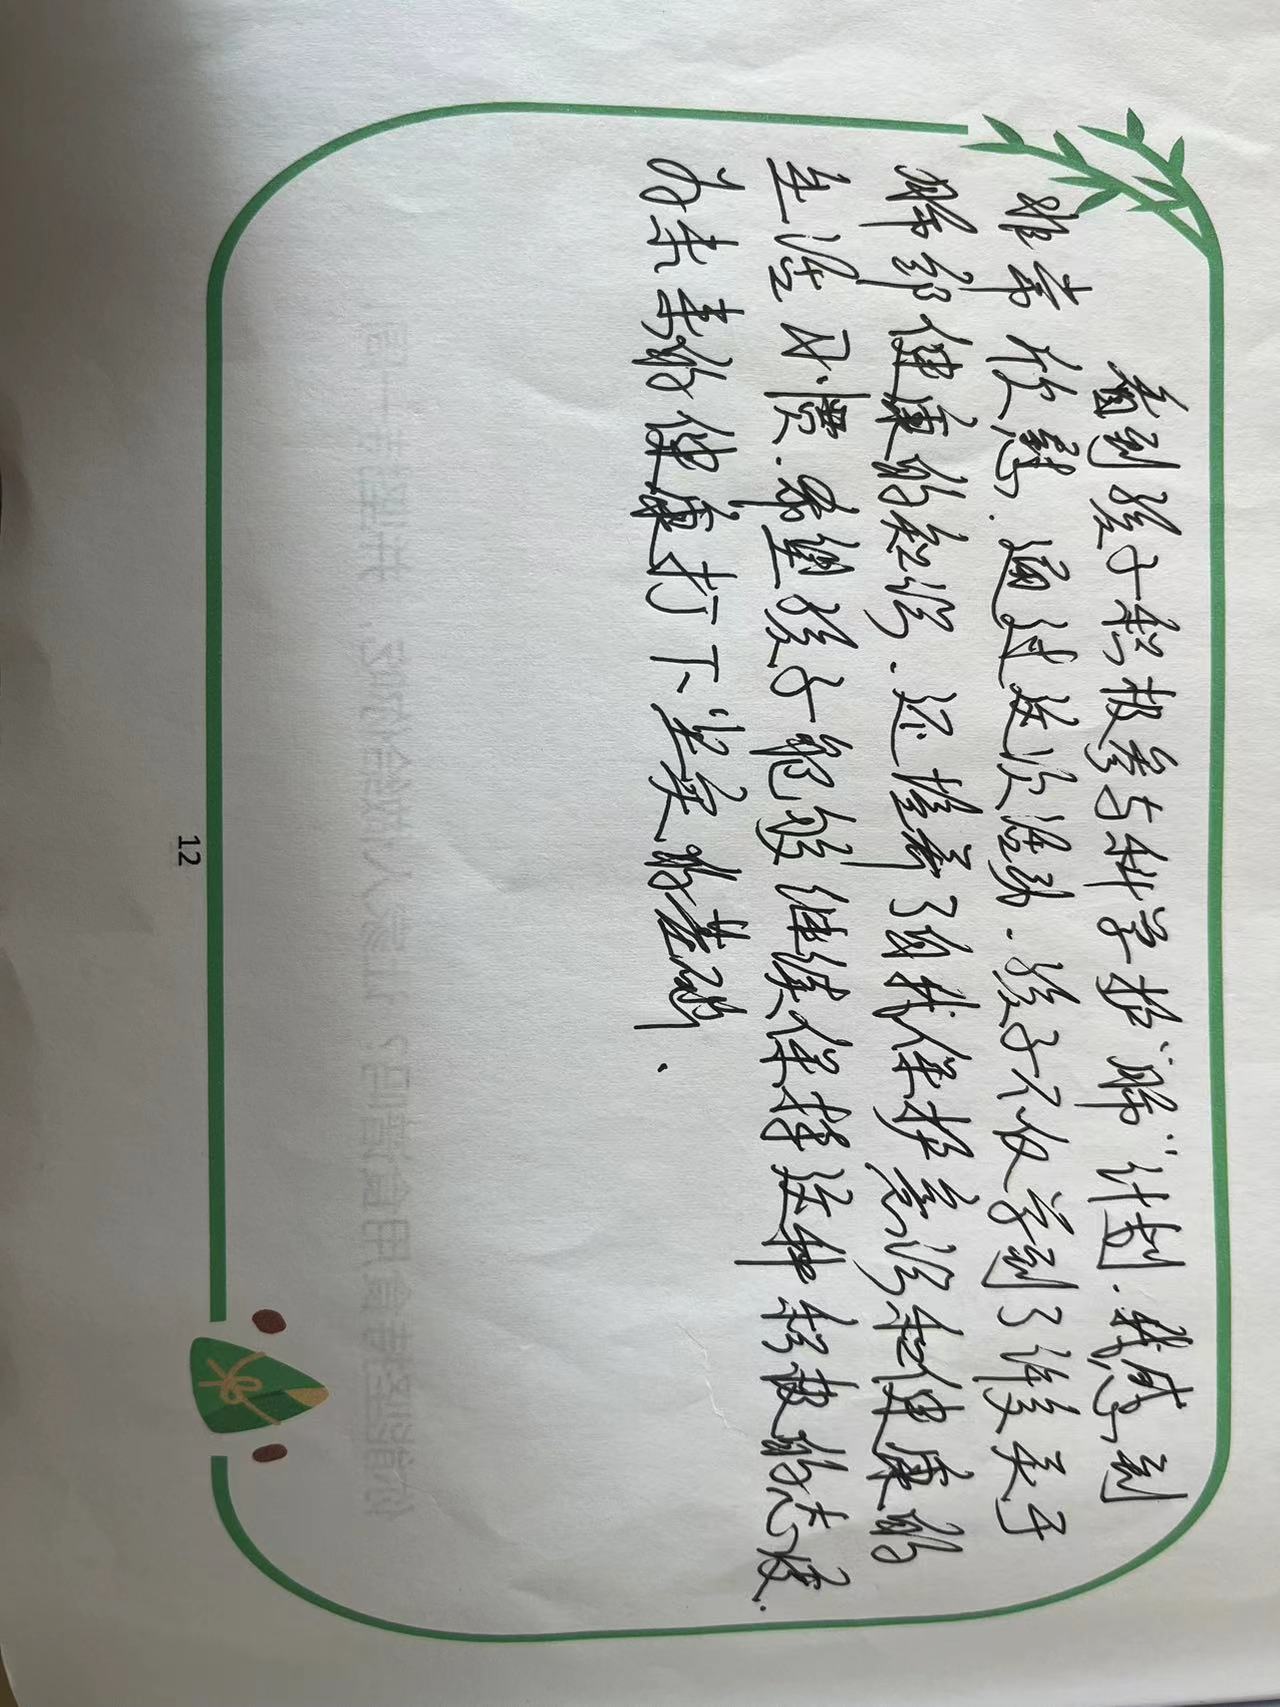 看到孩子积极参与科学护“肺”计划.我感到
非常欣慰.通过这次活动.孩子不仅学到了许多关于
肺部健康的知识.还培养了自我保护意识和健康的
生活习惯.希望孩子能够继续保持这种积极的态度.
为未来的健康打下坚实的基础.
12